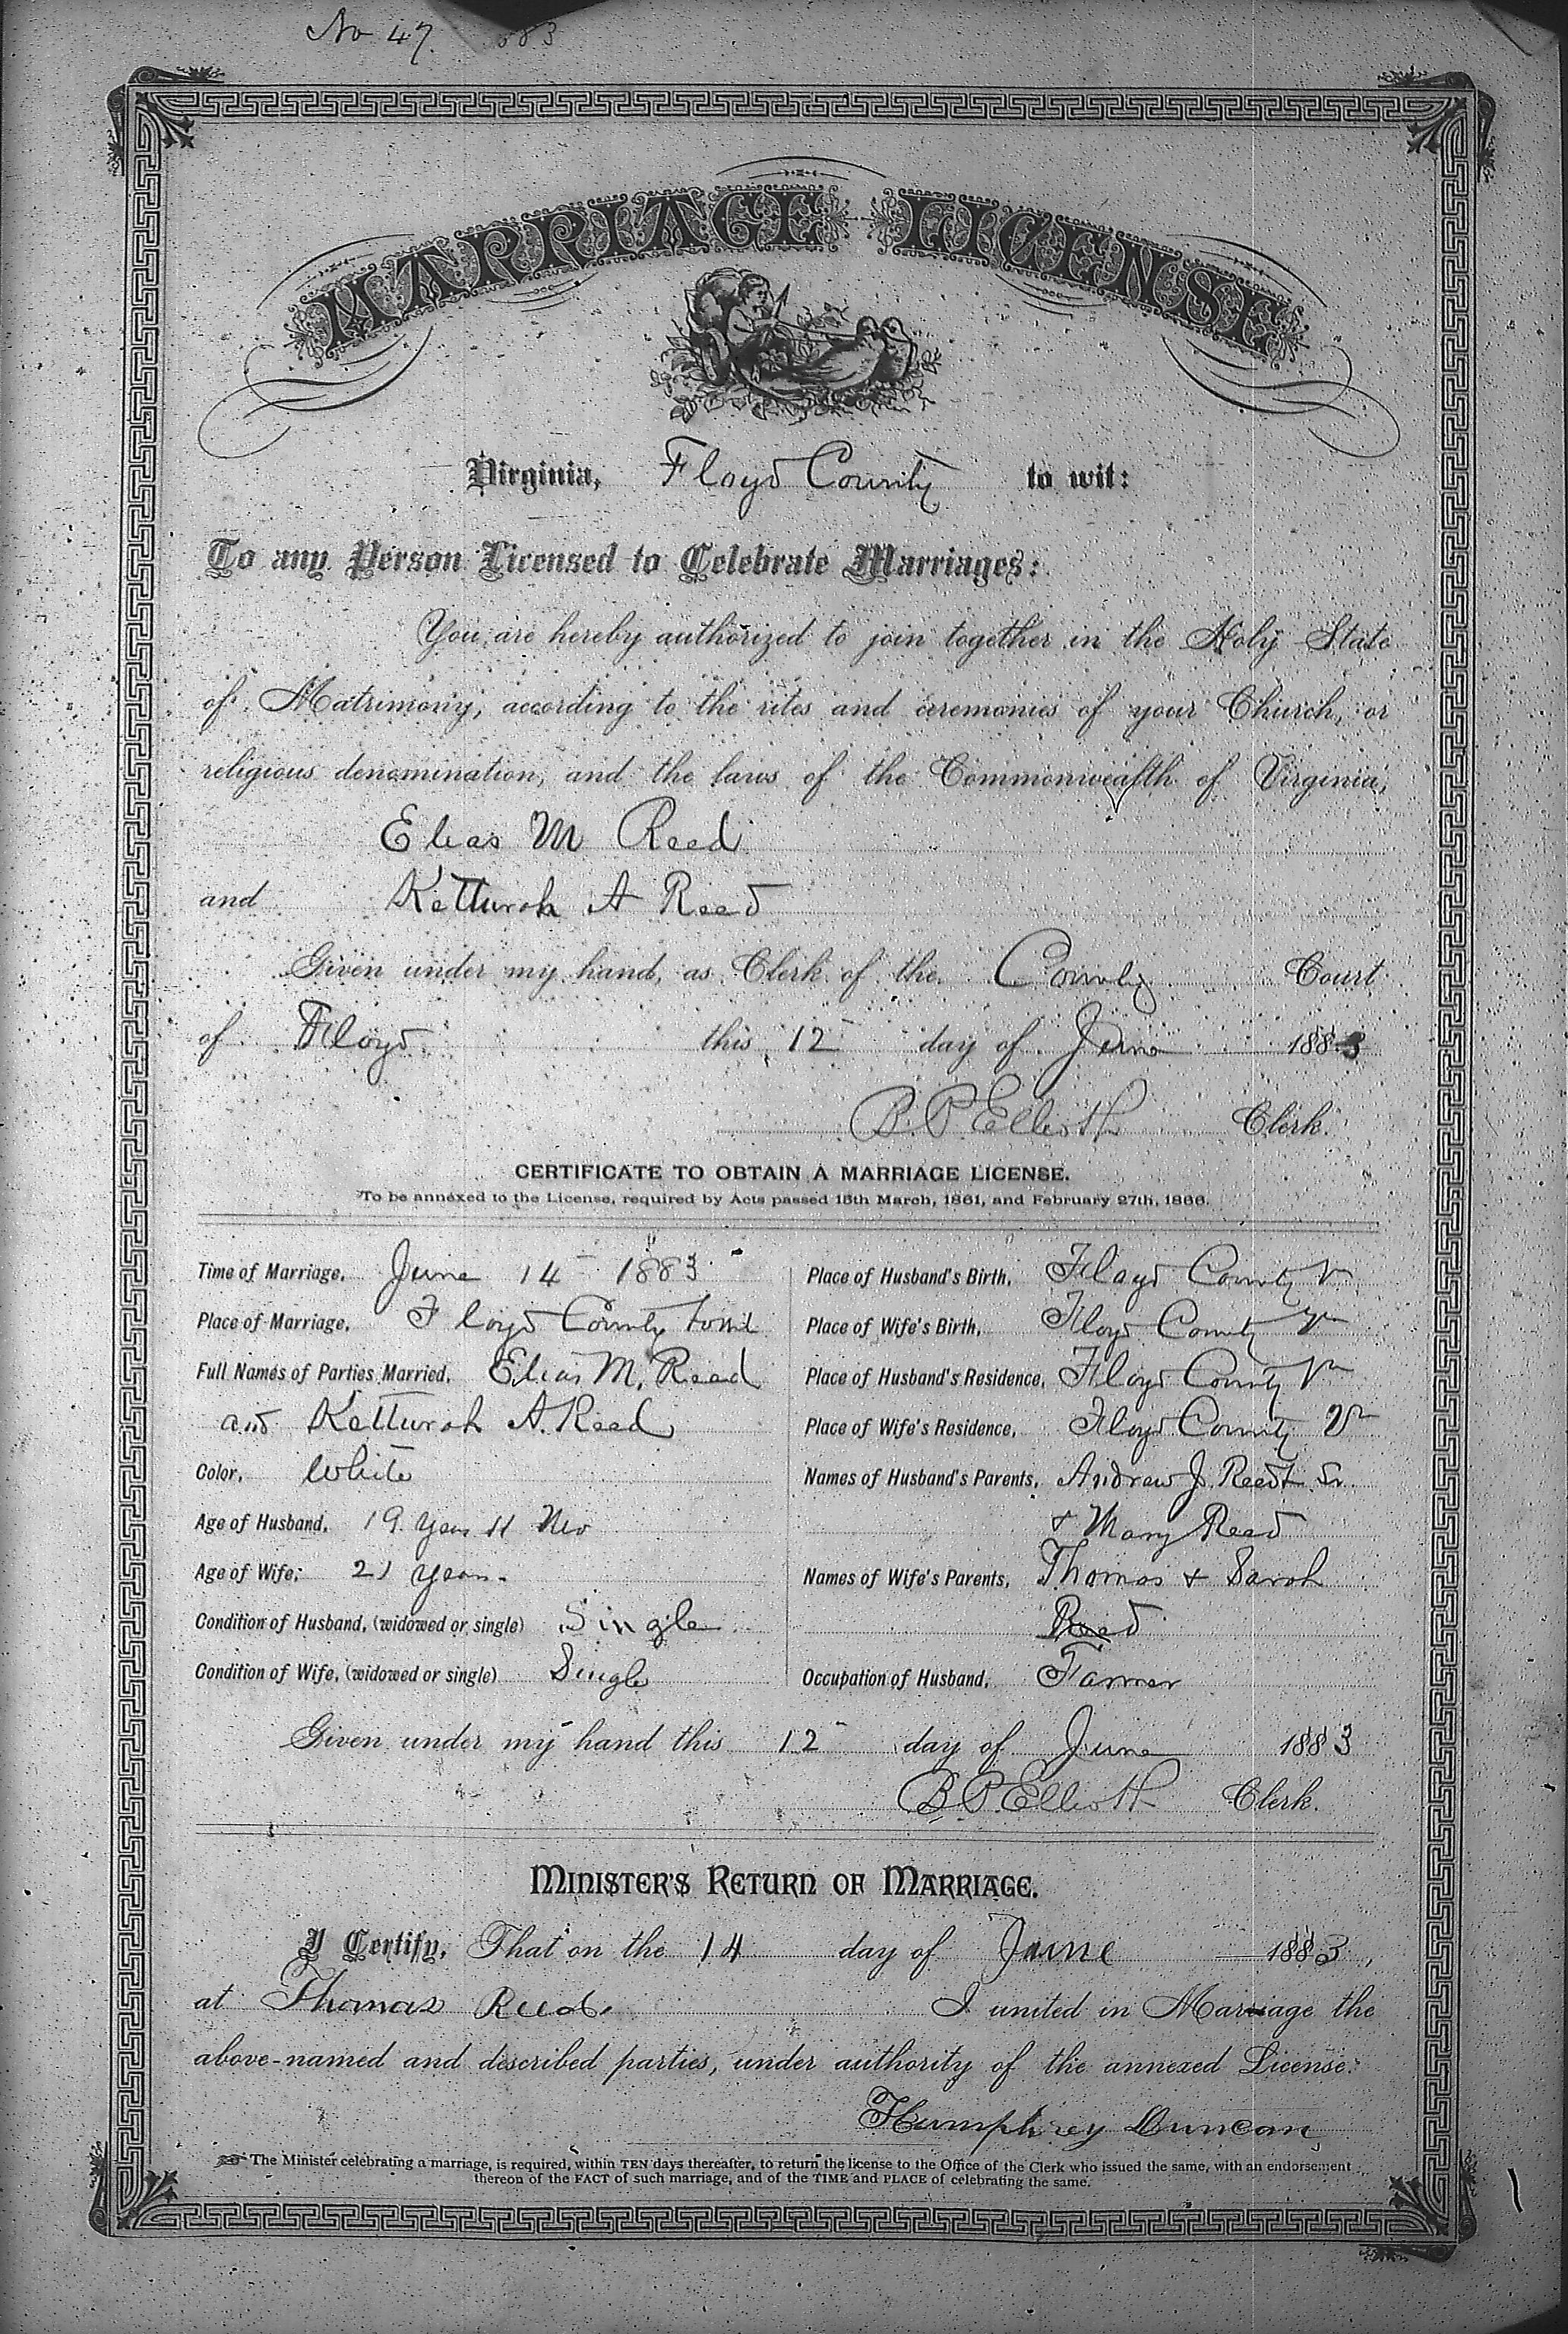 No 47. 883
MARRIAGE LICENSE
Virginia, Floyd County to wit:
To any Person Licensed to Celebrate Marriages:
You are hereby authorized to join together in the Holy State
of Matrimony, according to the rites and ceremonies of your Church, or
religious denomination, and the laws of the Commonwealth of Virginia,
Elias M Reed
and Ketturah A Reed
Given under my hand, as Clerk of the County Court
of Floyd this 12 day of June 1883
B. P. Elliott Clerk.
CERTIFICATE TO OBTAIN A MARRIAGE LICENSE.
To be annexed to the License, required by Acts passed 15th March, 1861, and February 27th, 1866.
Time of Marriage, June 14 1883
Place of Marriage, Floyd County
Full Names of Parties Married, Elias M. Reed
and Ketturah A. Reed
Color, White
Age of Husband, 19 years 11 Mo
Age of Wife, 21 years
Condition of Husband, (widowed or single) Single
Condition of Wife, (widowed or single) Single
Place of Husband's Birth, Floyd County Va
Place of Wife's Birth, Floyd County Va
Place of Husband's Residence, Floyd County Va
Place of Wife's Residence, Floyd County Va
Names of Husband's Parents, Andrew J. Reed Sr.
+ Mary Reed
Names of Wife's Parents, Thomas + Sarah
Reed
Occupation of Husband, Farmer
Given under my hand this 12 day of June 1883
B. P. Elliott Clerk.
MINISTER'S RETURN OF MARRIAGE.
I Certify, That on the 14 day of June 1883,
at Thomas Reeds I united in Marriage the
above-named and described parties, under authority of the annexed License.
Humphrey Duncan
The Minister celebrating a marriage, is required, within TEN days thereafter, to return the license to the Office of the Clerk who issued the same, with an endorsement
thereon of the FACT of such marriage, and of the TIME and PLACE of celebrating the same.